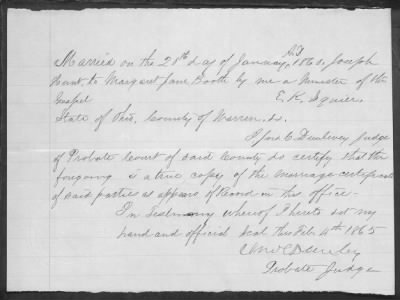 Married on the 28th day of January A.D. 1860. Joseph
Hant, to Margaret Jane Booth by me a Minister of the
Gospel
E. K. Squier.
State of Ohio, County of Warren. ss.
I C. Dunlevey Judge
of Probate Court of said County do certify that the
foregoing is a true copy of the marriage certificate
of said parties as appears of Record in this office -
In Testimony whereof I hereto set my
hand and official Seal this Feb. 4th 1865
C Dunlevy
Probate Judge